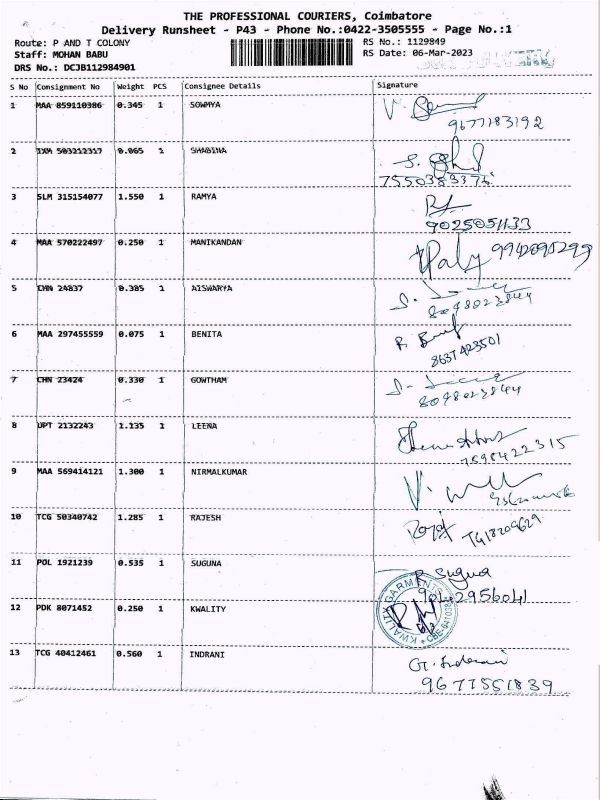 THE PROFESSIONAL COURIERS, Coimbatore
Delivery Runsheet - P43 - Phone No.:0422-3505555 - Page No.:1
Route: P AND T COLONY
RS No.: 1129849
Staff: MOHAN BABU
RS Date: 06-Mar-2023
DRS No.: DCJB112984901
S No Consignment No Weight PCS Consignee Details Signature
1 MAA 859110386 0.345 1 SOWMYA
9677183192
2 IXM 503212317 0.065 1 SHABINA
3 SLM 315154077 1.550 1 RAMYA
9025051133
4 MAA 570222497 0.250 1 MANIKANDAN
5 CHN 24837 0.385 1 AISWARYA
8098023844
6 MAA 297455559 0.075 1 BENITA
8637423501
7 CHN 23424 0.330 1 GOWTHAM
8098023844
8 UPT 2132243 1.135 1 LEENA
7598422315
9 MAA 569414121 1.300 1 NIRMALKUMAR
10 TCG 50340742 1.285 1 RAJESH
11 POL 1921239 0.535 1 SUGUNA
R Suguna
9042956041
12 PDK 8071452 0.250 1 KWALITY
KWALITY GARMENTS
13 TCG 40412461 0.560 1 INDRANI
G. Indrani
9677551839